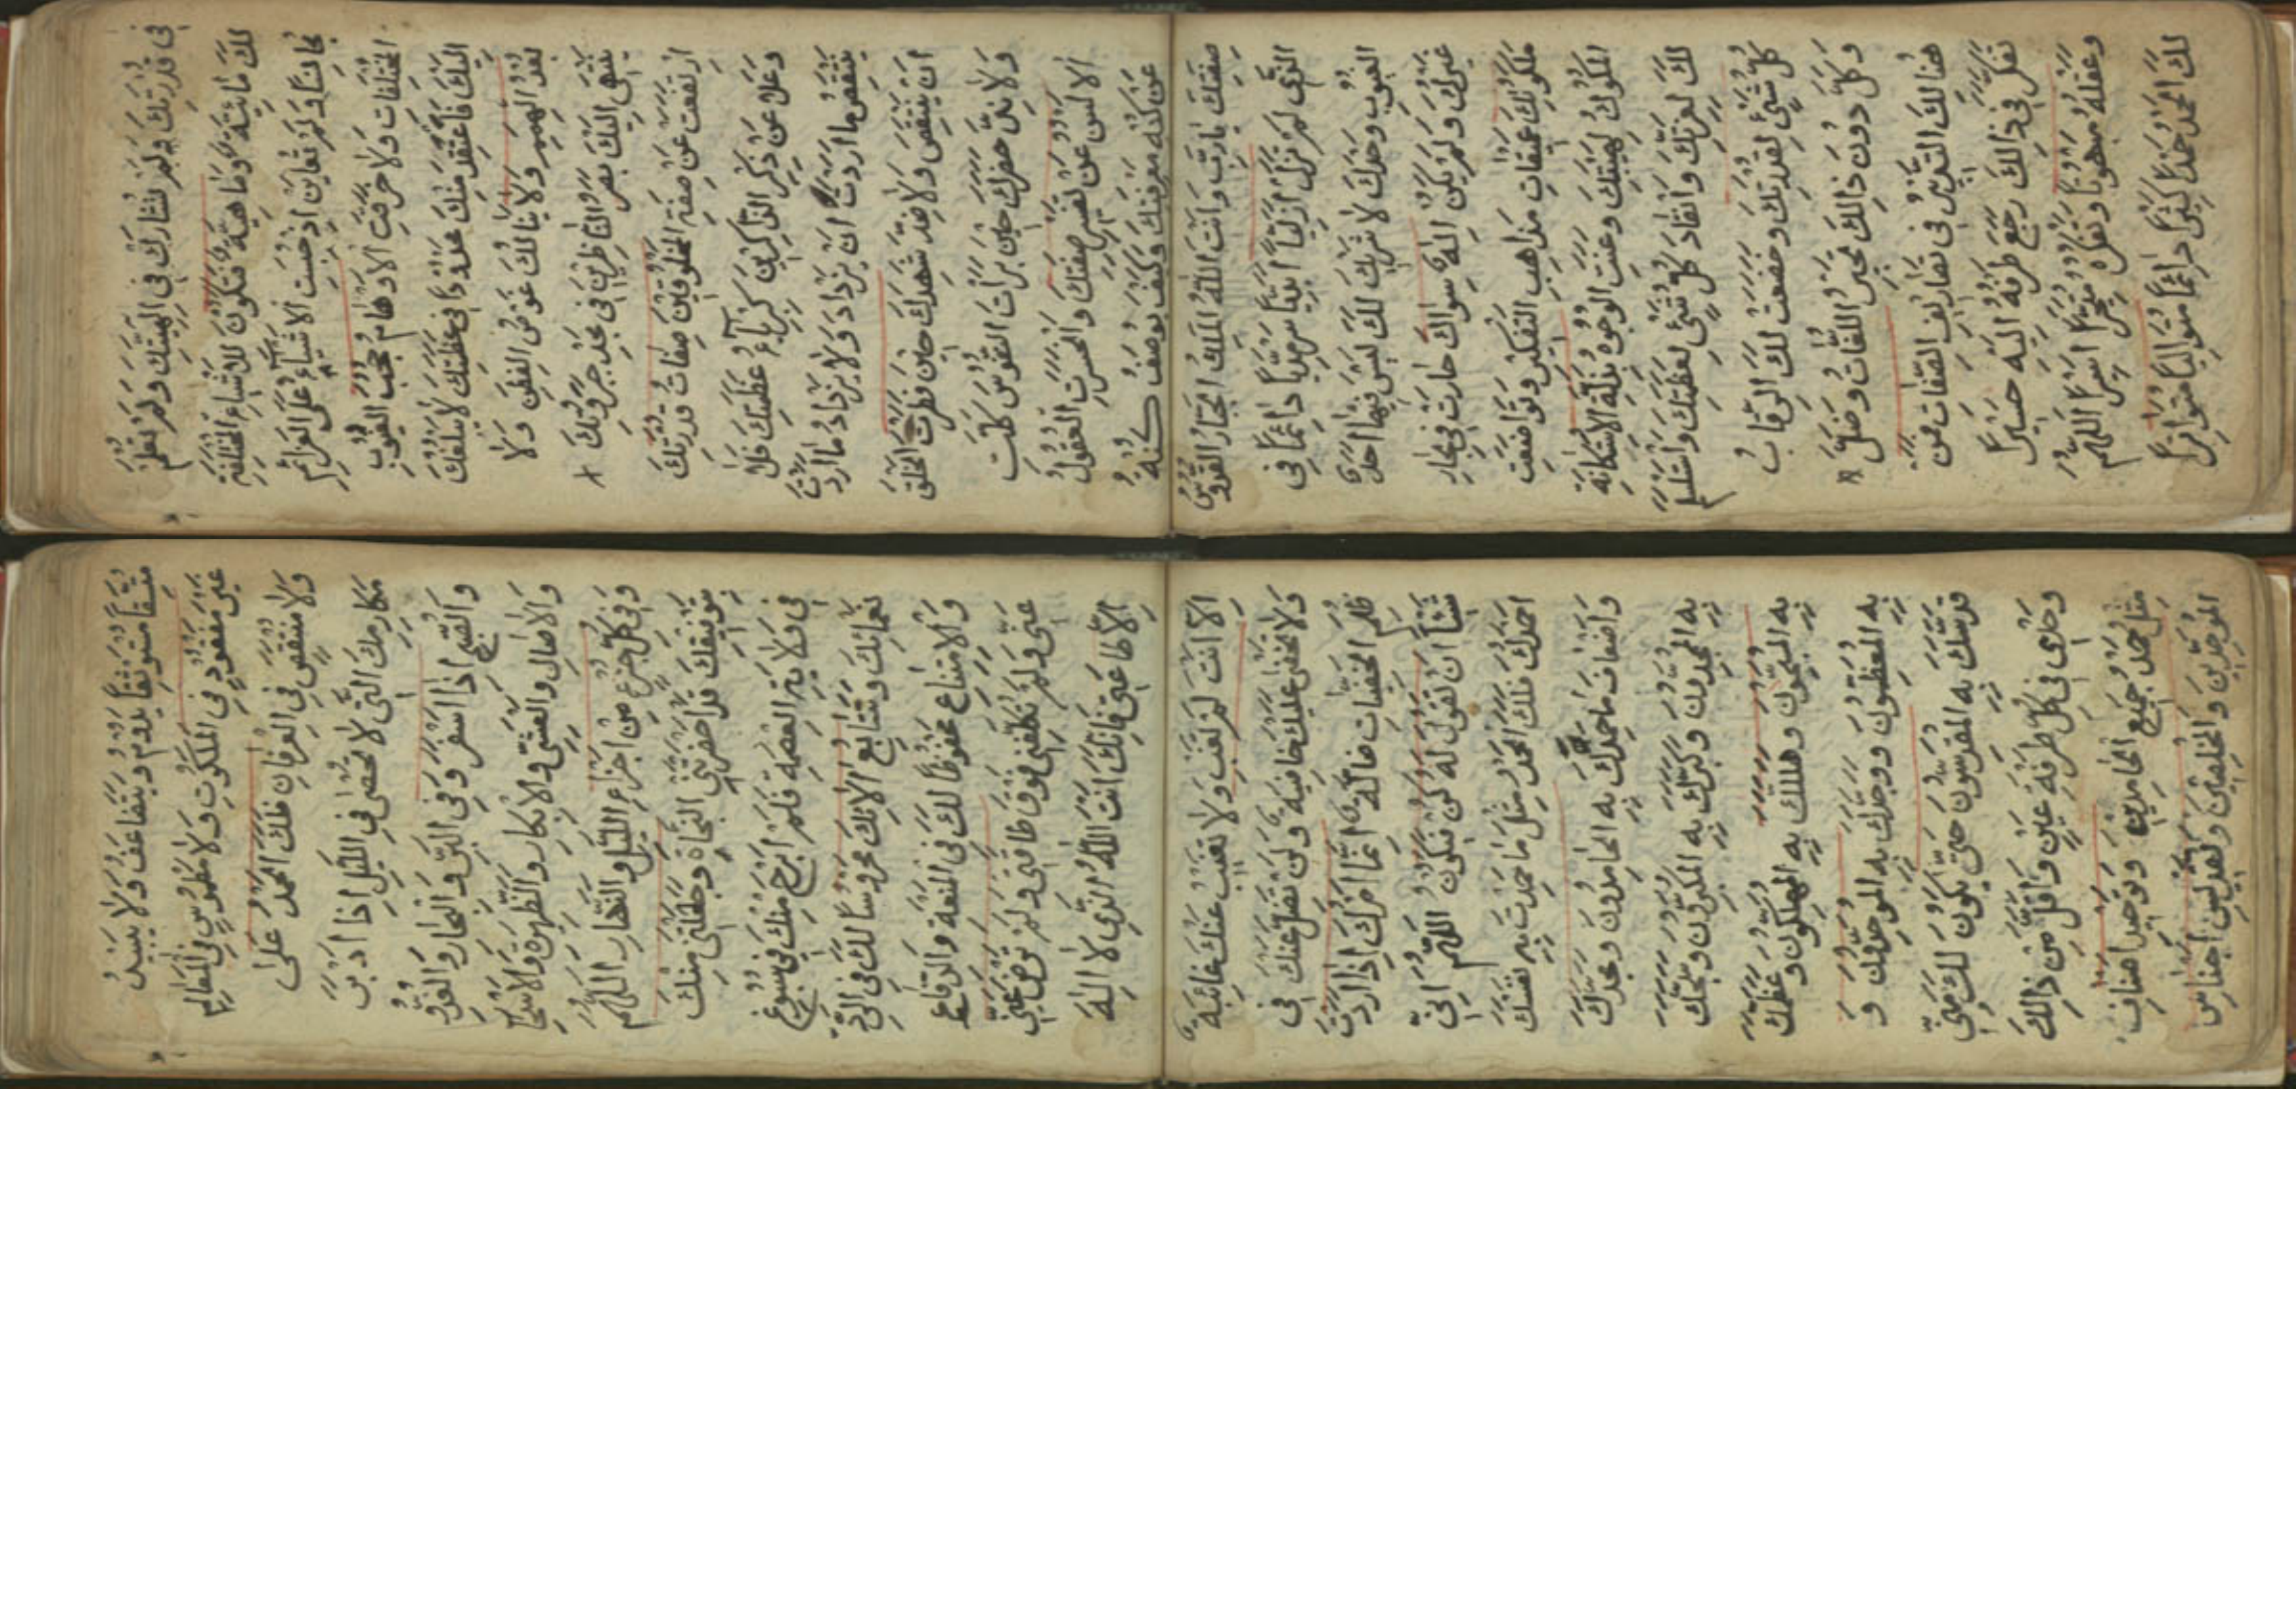 في قدرتك ولم تشارك في الهيتك ولم تعلم
لك مائية وماهية فتكون للاشياء المختلفة
مجانسا ولم تعاين اذ حبست الاشياء على العزائم
المختلفات ولا خرقت الاوهام حجب الغيوب
اليك فاعتقد منك محدودا في عظمتك لا يبلغك
بعد الهمم ولا ينالك غوص الفطن ولا
ينتهي اليك بصر الناظرين في مجد جبروتك
ارتفعت عن صفة المخلوقين صفات قدرتك
وعلا عن ذكر الذاكرين كبرياء عظمتك فلا
ينتقص ما اردت ان يزداد ولا يزداد ما اردت
ان ينتقص ولا ضد شهدك حين فطرت الخلق
ولا ند حضرك حين برات النفوس كلت
الالسن عن تفسير صفتك وانحسرت العقول
عن كنه معرفتك وكيف يوصف كنه
صفتك يارب وانت الله الملك الجبار القدوس
الذي لم تزل ازليا ابديا سرمديا دائما في
الغيوب وحدك لا شريك لك ليس فيها احد
غيرك ولم يكن اله سواك حارت في بحار
ملكوتك عميقات مذاهب التفكير وتواضعت
الملوك لهيبتك وعنت الوجوه بذلة الاستكانة
لك لعزتك وانقاد كل شيء لعظمتك واستسلم
كل شيء لقدرتك وخضعت لك الرقاب
وكل دون ذالك تحبير اللغات وضل
هنالك التدبير في تصاريف الصفات فمن
تفكر في ذالك رجع طرفه اليه حسيرا
وعقله مبهوتا وتفكره متحيرا اسيرا اللهم
لك الحمد حمدا كثيرا دائما متواليا متواترا
متسقا مستوثقا يدوم ويتضاعف ولا يبيد
غير مفقود في الملكوت ولا مطموس في المعالم
ولا منتقص في العرفان فلك الحمد على
مكارمك التي لا تحصى في الليل اذا ادبر
والصبح اذا اسفر وفي البر والبحار والغدو
والاصال والعشي والابكار والظهيرة والاسحار
وفي كل جزء من اجزاء الليل والنهار اللهم
بتوفيقك قد احضرتني النجاة وجعلتني منك
في ولاية العصمة فلم ابرح منك في سبوغ
نعمائك وتتابع الائك محروسا لك في الرد
والامتناع محفوظا لك في المنعة والدفاع
عني ولم تكلفني فوق طاقتي ولم ترض عني
الا طاعتي فانك انت الله الذي لا اله
الا انت لم تغب ولا تغيب عنك غائبة
ولا تخفى عليك خافية ولن تضل عنك في
ظلم الخفيات ضالة انما امرك اذا اردت
شيئا ان تقول له كن فيكون اللهم اني
احمدك فلك الحمد مثل ما حمدت به نفسك
واضعاف ما حمدك به الحامدون ومجدك
به الممجدون وكبرك به المكبرون وسبحك
به المسبحون وهللك به المهللون وعظمك
به المعظمون ووحدك به الموحدون و
قدسك به المقدسون حتى يكون لك مني
وحدي في كل طرفة عين واقل من ذالك
مثل حمد جميع الحامدين وتوحيد اصناف
الموحدين والمخلصين وتقديس اجناس